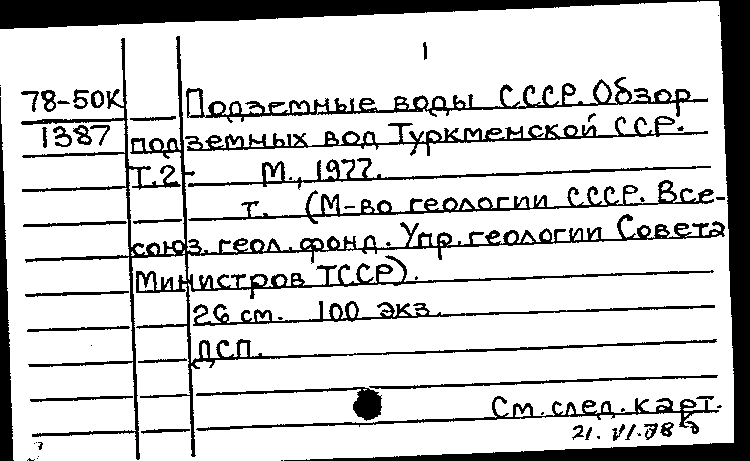 1
78-50К Подземные воды СССР. Обзор
1387 подземных вод Туркменской ССР.
Т.2- М., 1977.
т. (М-во геологии СССР. Все-
союз. геол. фонд. Упр. геологии Совета
Министров ТССР).
26 см. 100 экз.
ДСП.
См. след. карт.
21.VI.78